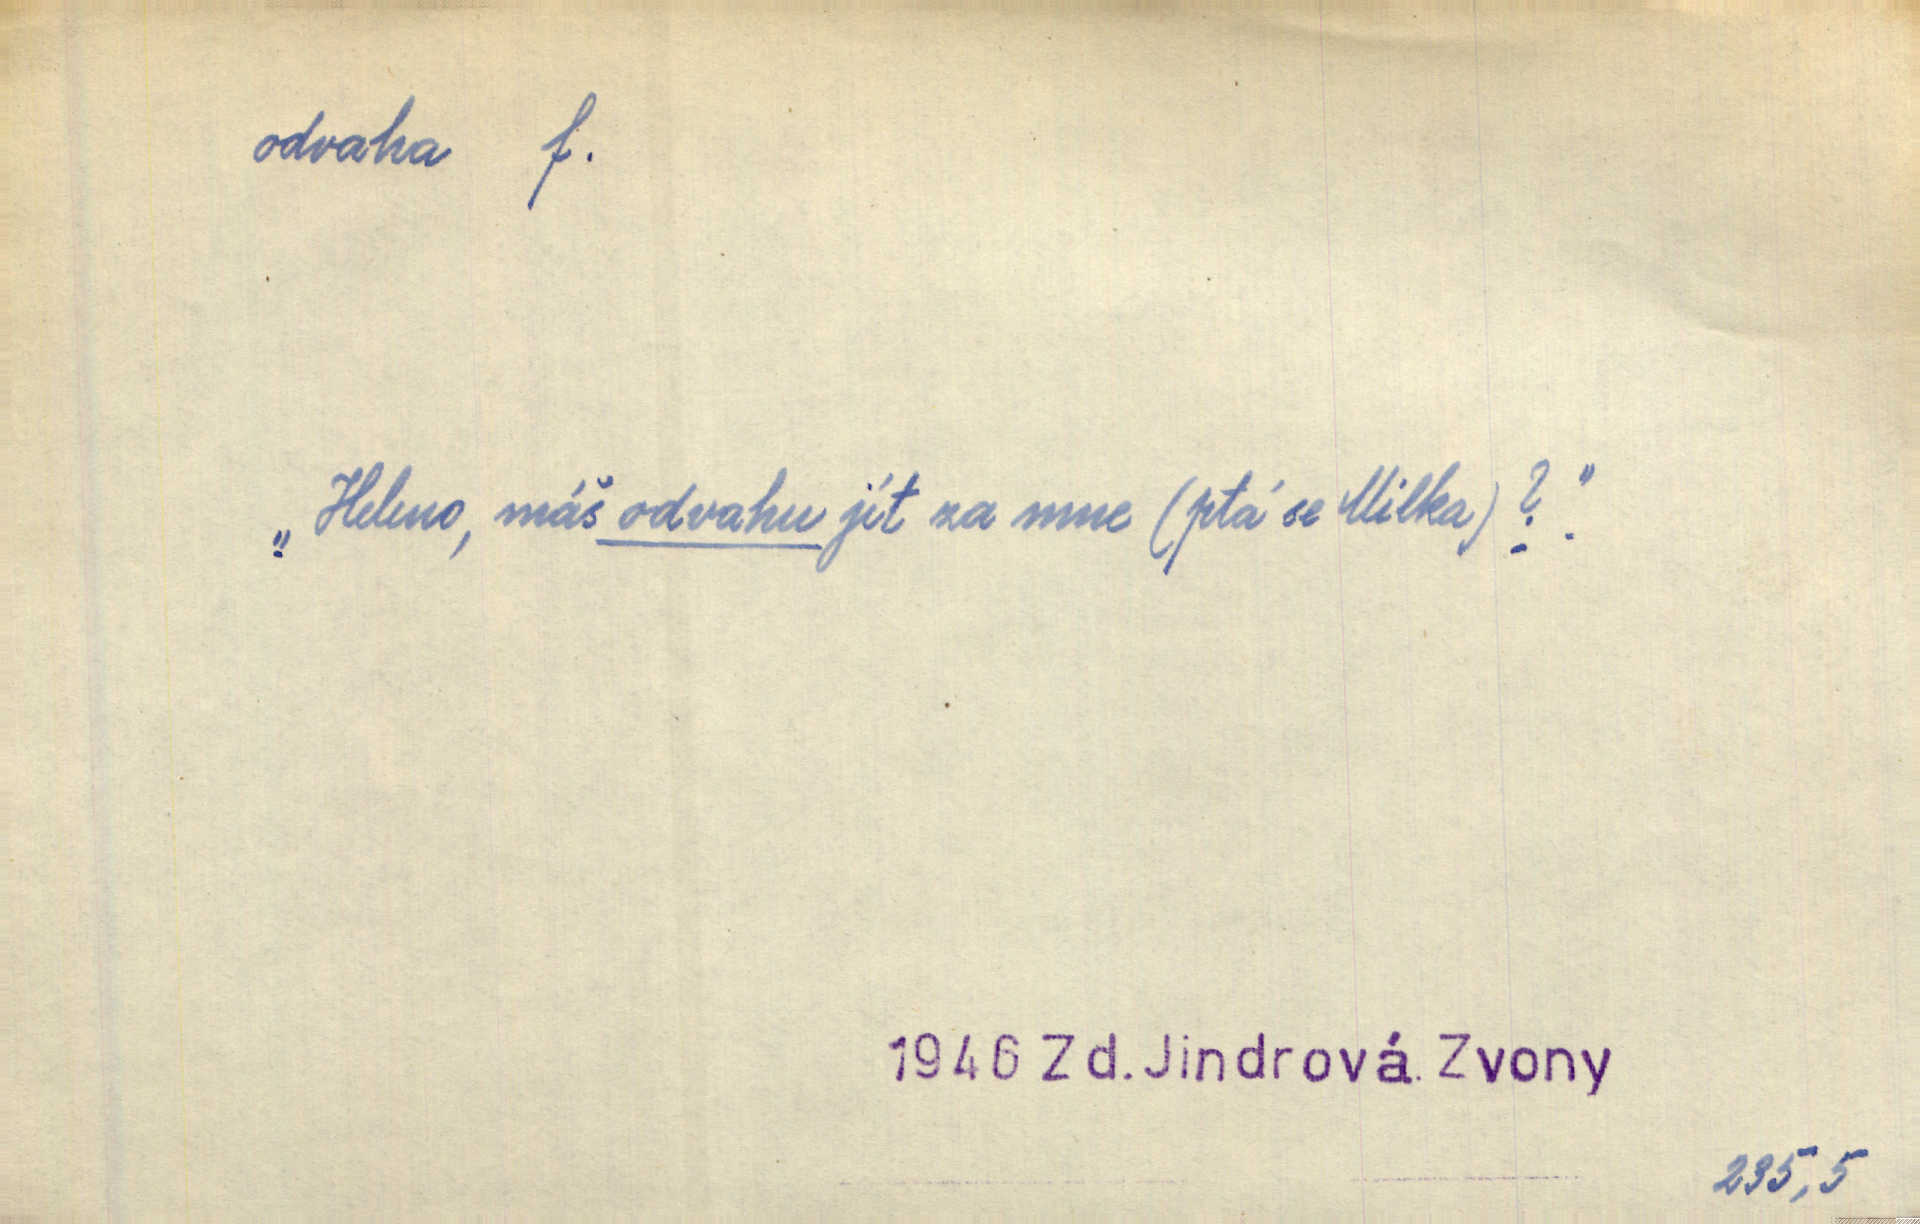 odvaha f.
„Heleno, máš odvahu jít za mne (ptá se Milka)?".
1946 Zd. Jindrová. Zvony
235,5